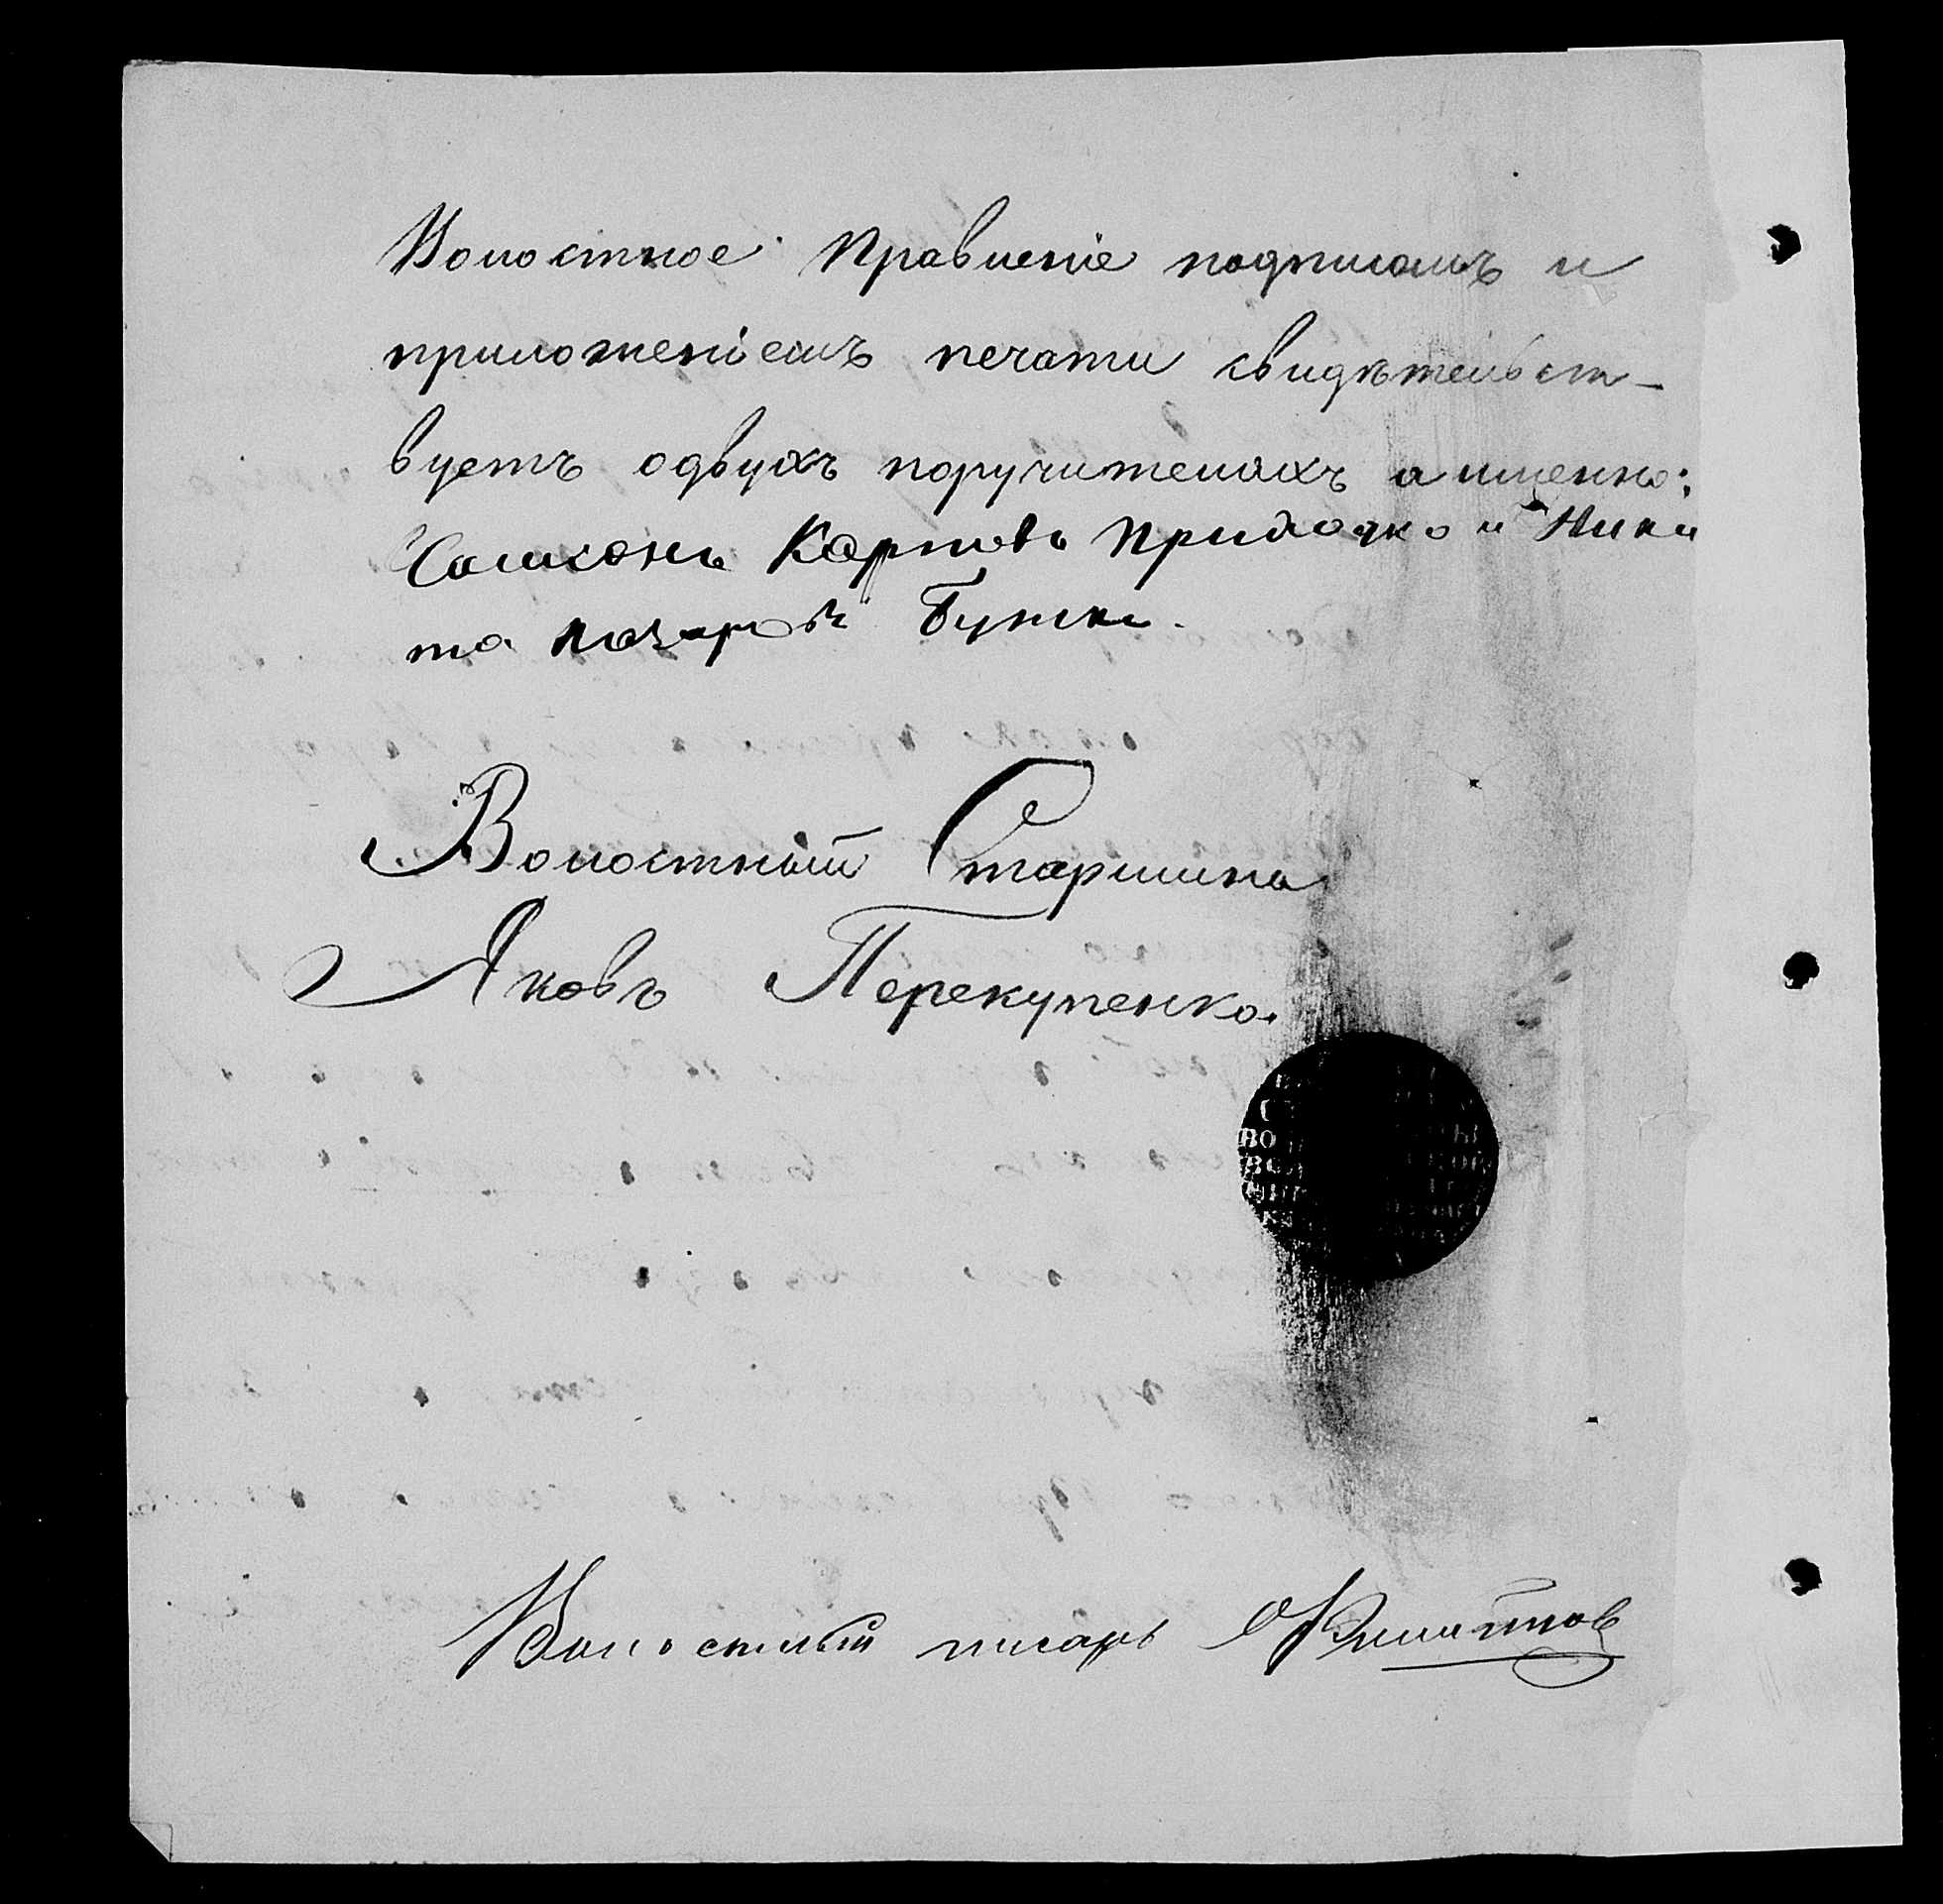 Волостное Правленіе подписомъ и
приложеніемъ печати свидѣтельст-
вуетъ одвухъ поручителяхъ а именно:
Самсонъ Карповъ Приходько и Ники
та Назаровъ
Волостный Старшина
Яковъ Перекупенко.
Волостный писарь